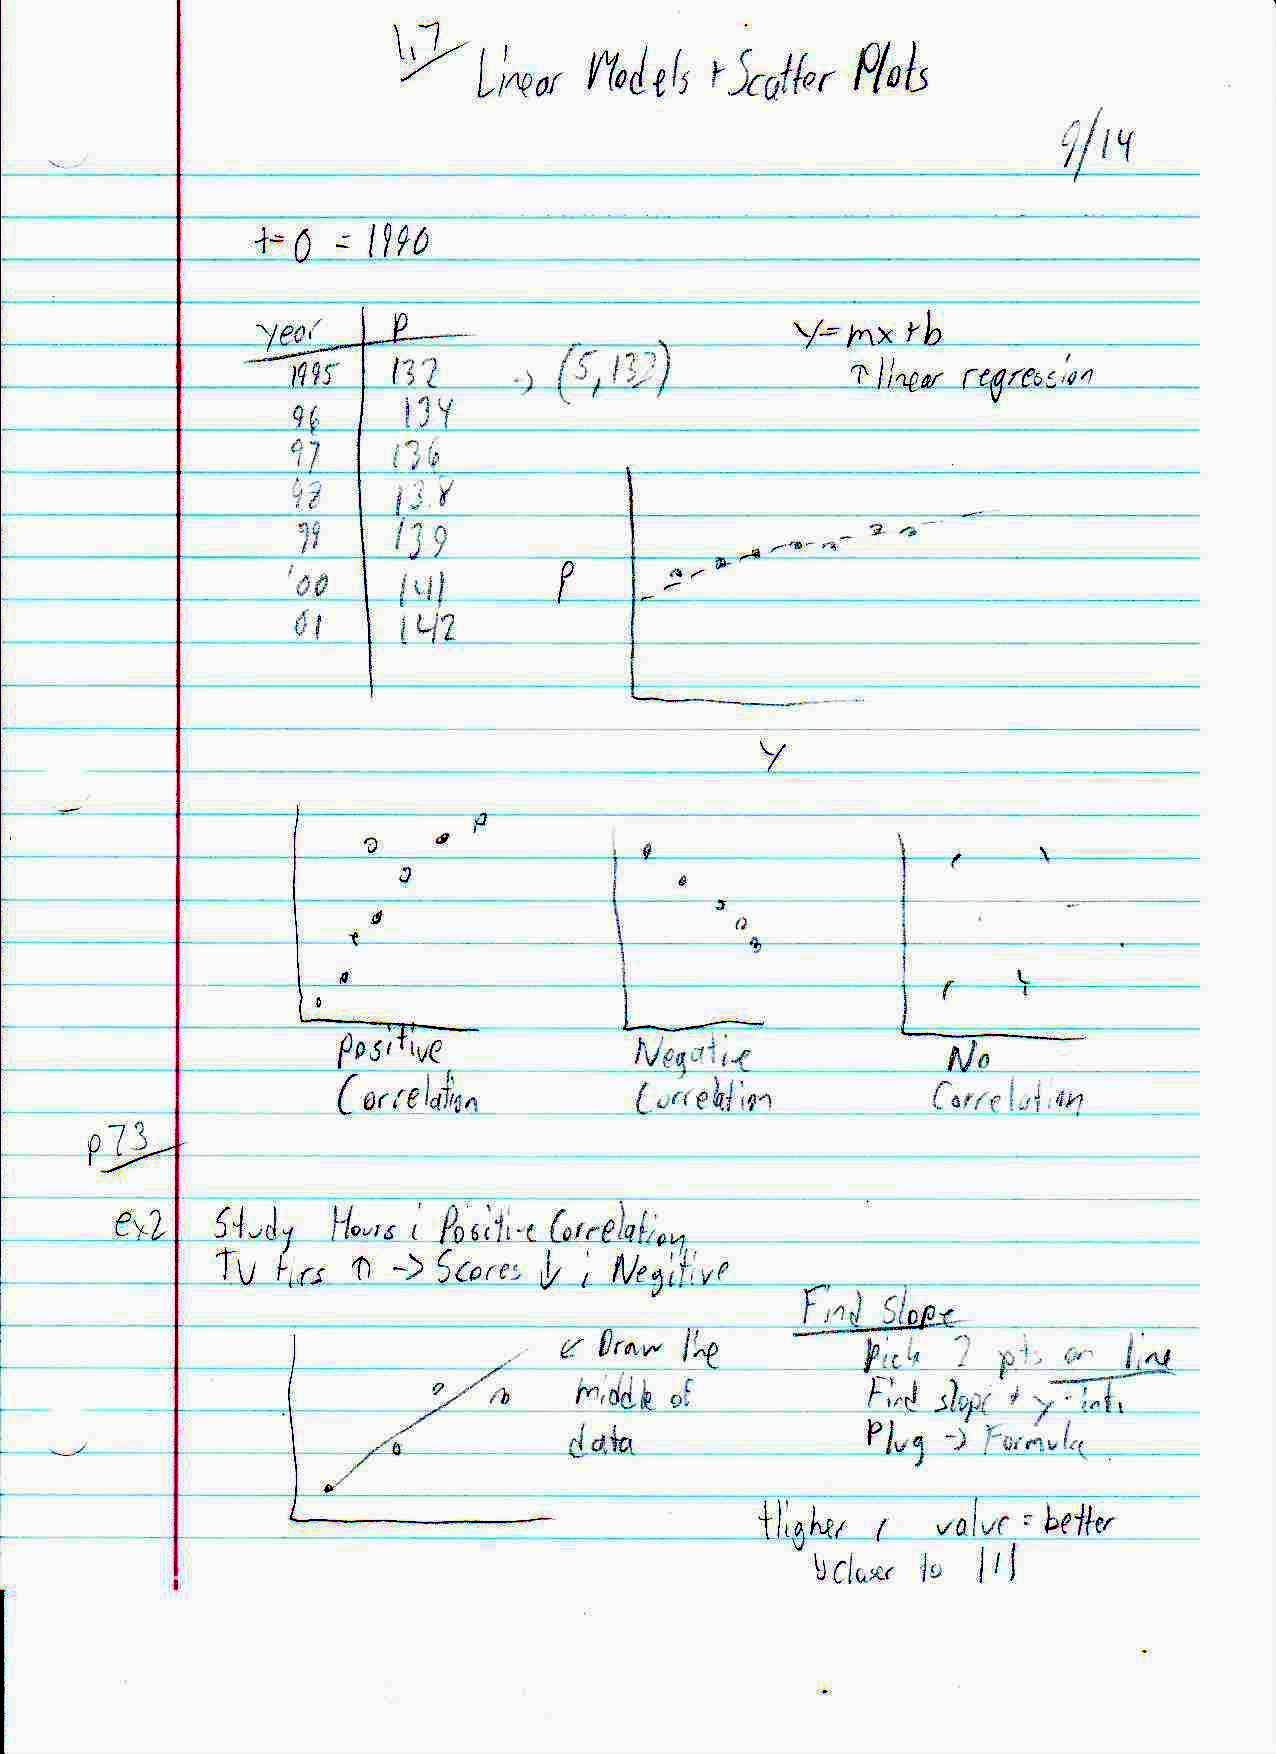 1.7 Linear Models + Scatter Plots
9/14
t=0 = 1990
year P
1995 132 -> (5,132)
96 134
97 136
98 138
99 139
'00 141
01 142
y=mx+b
↑ linear regression
P
Y
Positive
Correlation
Negative
Correlation
No
Correlation
p73
ex2 Study Hours ; Positive Correlation
TV Hrs ↑ -> Scores ↓ ; Negitive
Draw the
middle of
data
Find Slope
Pick 2 pts on line
Find slope + y-int.
Plug -> Formula
Higher r value = better
closer to |1|